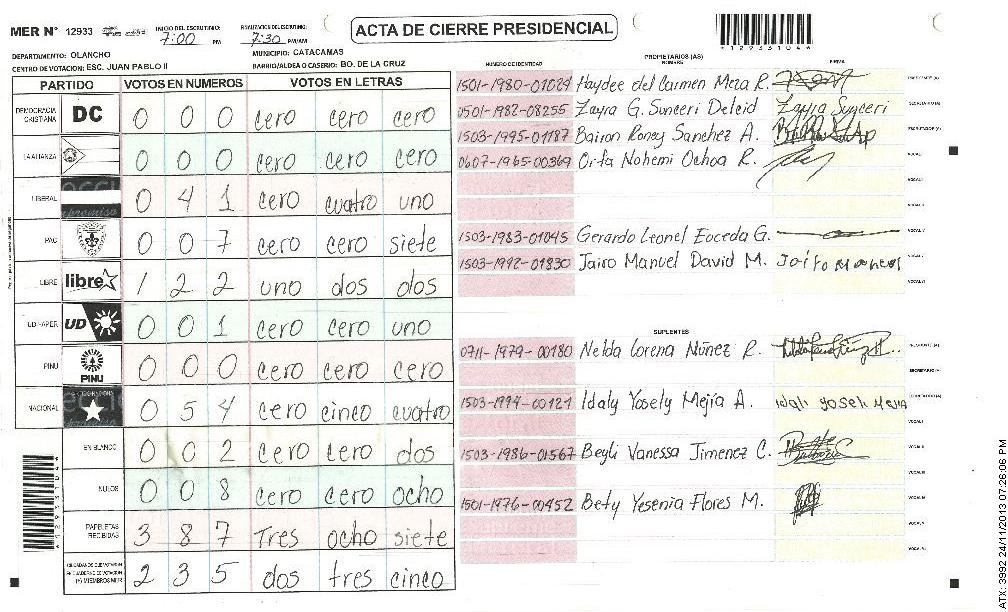 MER N° 12933
INICIO DEL ESCRUTINIO: 7:00 PM
FINALIZACION DEL ESCRUTINIO: 7:30 PM/AM
ACTA DE CIERRE PRESIDENCIAL
DEPARTAMENTO: OLANCHO
MUNICIPIO: CATACAMAS
CENTRO DE VOTACION: ESC. JUAN PABLO II
BARRIO/ALDEA O CASERIO: BO. DE LA CRUZ
PARTIDO VOTOS EN NUMEROS VOTOS EN LETRAS
DEMOCRACIA CRISTIANA DC 0 0 0 cero cero cero
LA ALIANZA 0 0 0 cero cero cero
LIBERAL 0 4 1 cero cuatro uno
PAC 0 0 7 cero cero siete
LIBRE libre 1 2 2 uno dos dos
UD-FAPER UD 0 0 1 cero cero uno
PINU PINU 0 0 0 cero cero cero
NACIONAL 0 5 4 cero cinco cuatro
EN BLANCO 0 0 2 cero cero dos
NULOS 0 0 8 cero cero ocho
PAPELETAS RECIBIDAS 3 8 7 Tres ocho siete
CIUDADANOS QUE VOTARON
(+) MIEMBROS MER 2 3 5 dos tres cinco
PROPIETARIOS (AS)
NUMERO DE IDENTIDAD NOMBRE FIRMA
1501-1980-01024 Haydee del Carmen Meza R.
0501-1982-08255 Zayra G. Sunceri Deleid Zayra Sunceri
1503-1995-01187 Bairon Roney Sanchez A.
0607-1965-00369 Orfa Nohemi Ochoa R.
1503-1983-01045 Gerardo Leonel Euceda G.
1503-1992-01830 Jairo Manuel David M. Jairo Manuel
SUPLENTES
0711-1979-00180 Nelda Lorena Núñez R.
1503-1994-00121 Idaly Yosely Mejía A. Idali Yoseli Mejia
1503-1986-01567 Beyli Vanessa Jimenez C.
1501-1976-00452 Bety Yesenia Flores M.
ATX: 3992 24/11/2013 07:26:06 PM